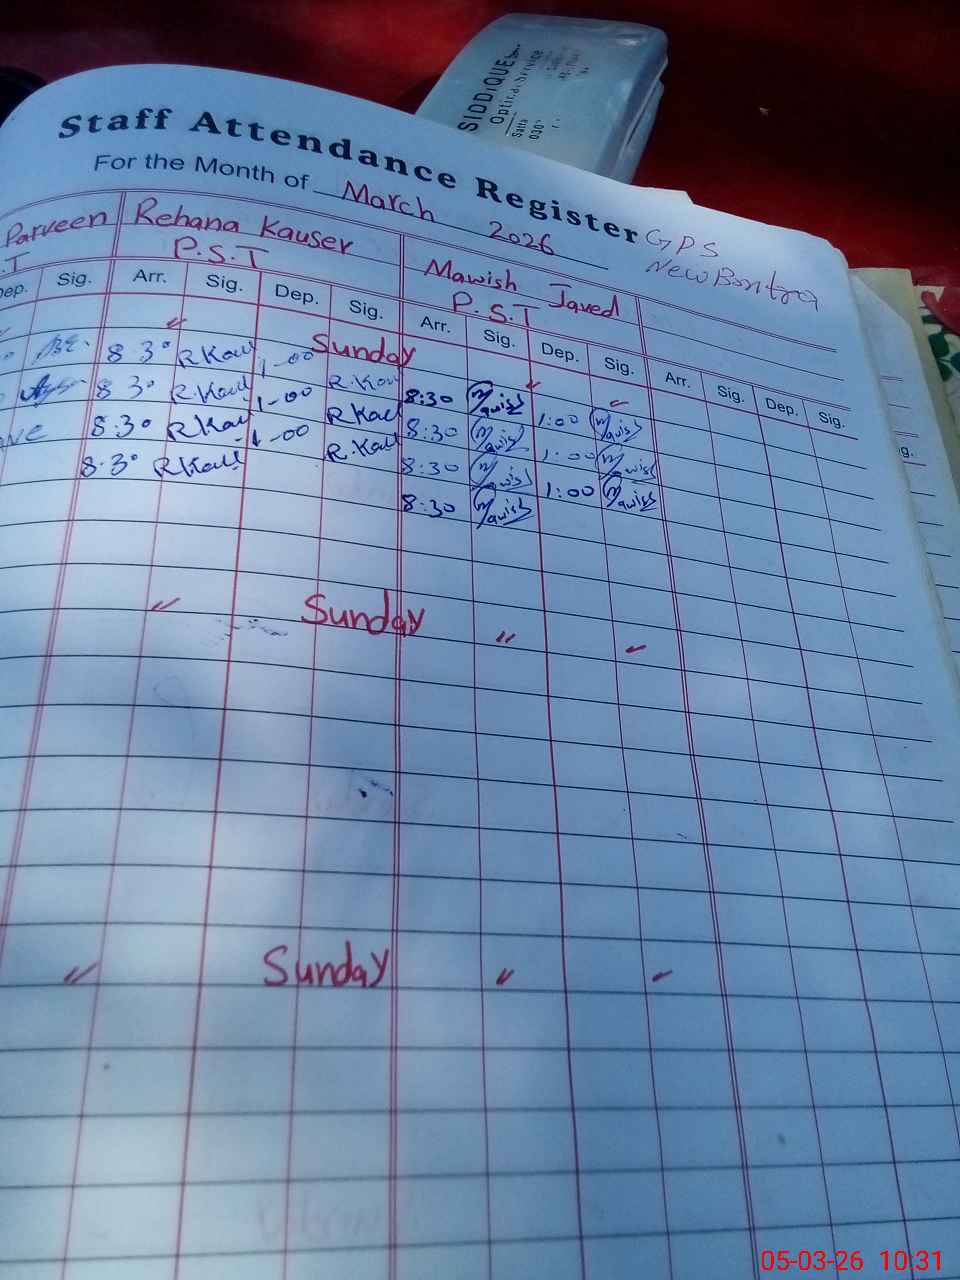 SIDDIQUE
Optical Service
Staff Attendance Register
For the Month of March 2026
GPS
New Bontra
Parveen Rehana Kauser Mawish Javed
P.S.T P.S.T
Dep. Sig. Arr. Sig. Dep. Sig. Arr. Sig. Dep. Sig. Arr. Sig. Dep. Sig.
〃 Sunday 〃 〃
8:30 R.Kau 1-00 R.Kau 8:30 Mawish 1:00 Mawish
8:30 R.Kau 1-00 R.Kau 8:30 Mawish 1:00 Mawish
8:30 R.Kau 1-00 R.Kau 8:30 Mawish 1:00 Mawish
8:30 R.Kau 8:30 Mawish
〃 Sunday 〃 〃
〃 Sunday 〃 〃
05-03-26 10:31